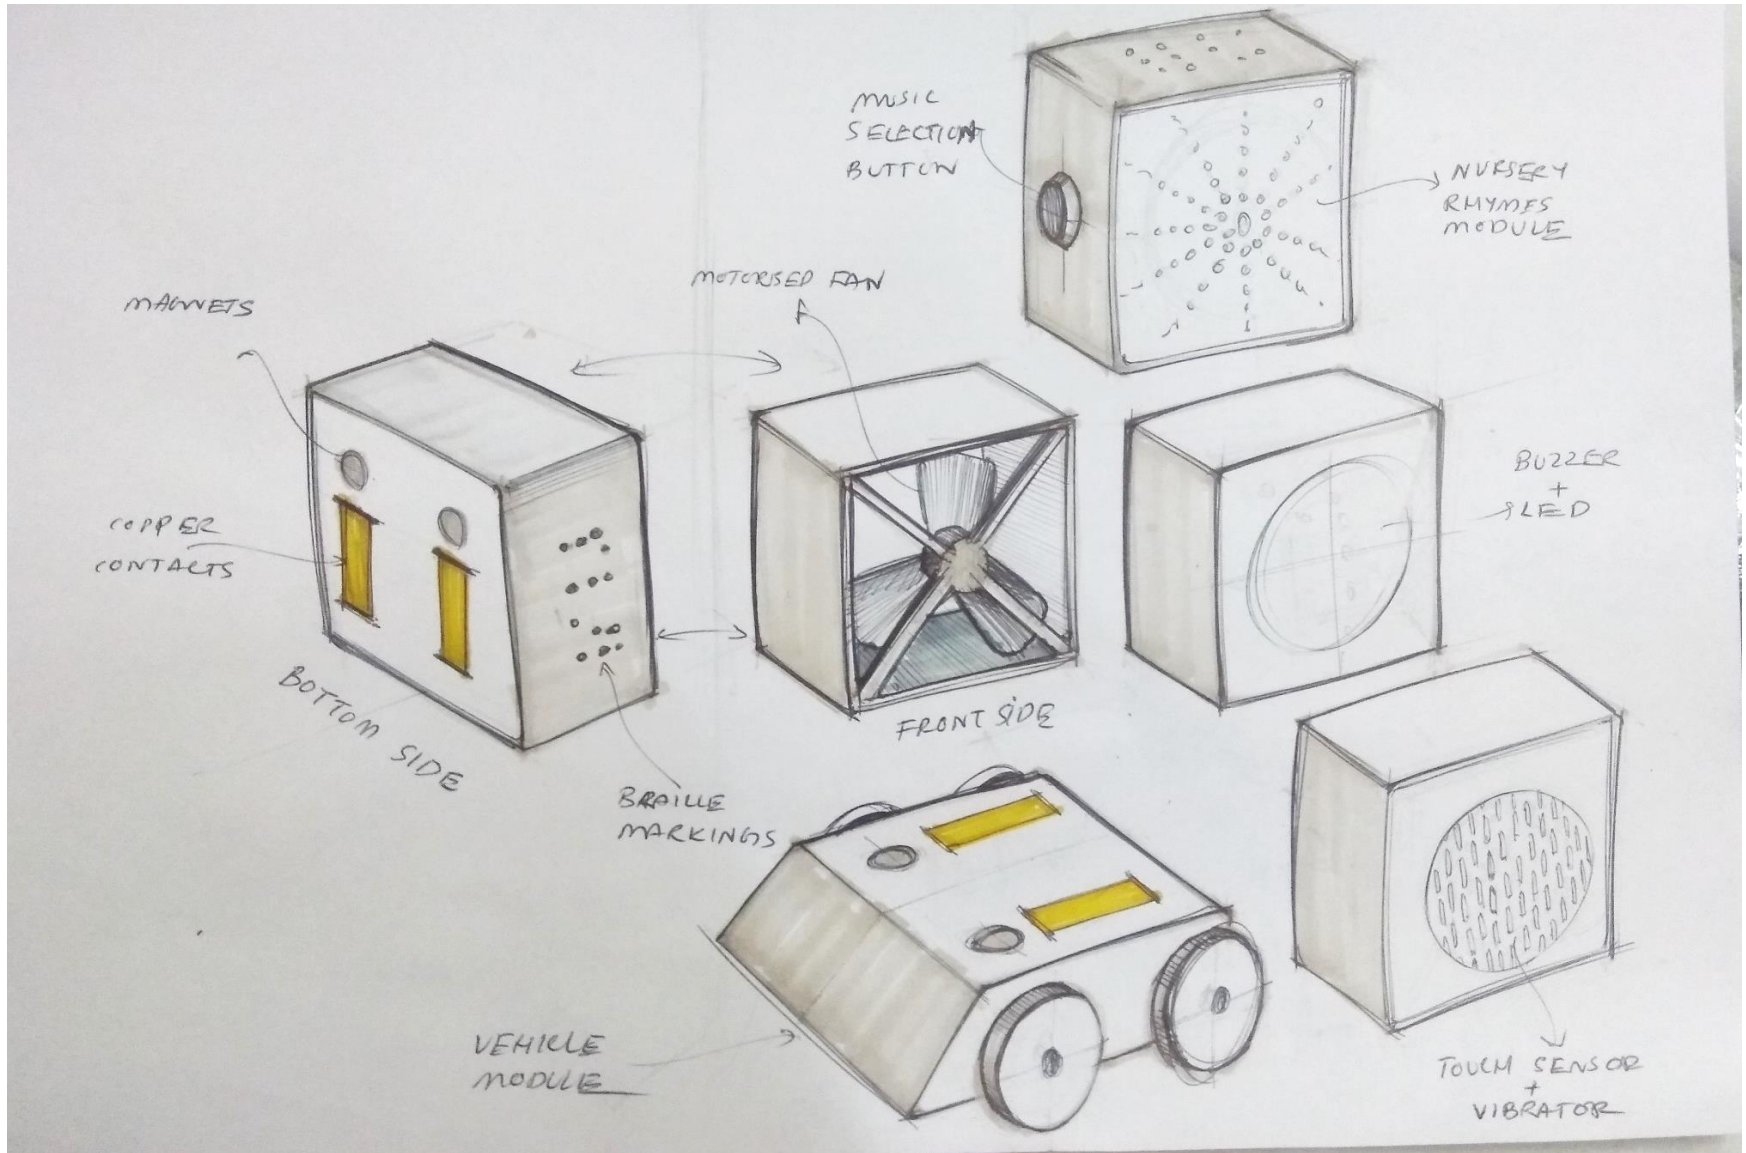 MUSIC
SELECTION
BUTTON
NURSERY
RHYMES
MODULE
MOTORISED FAN
MAGNETS
COPPER
CONTACTS
BUZZER
+
LED
BOTTOM SIDE
FRONT SIDE
BRAILLE
MARKINGS
VEHICLE
MODULE
TOUCH SENSOR
+
VIBRATOR